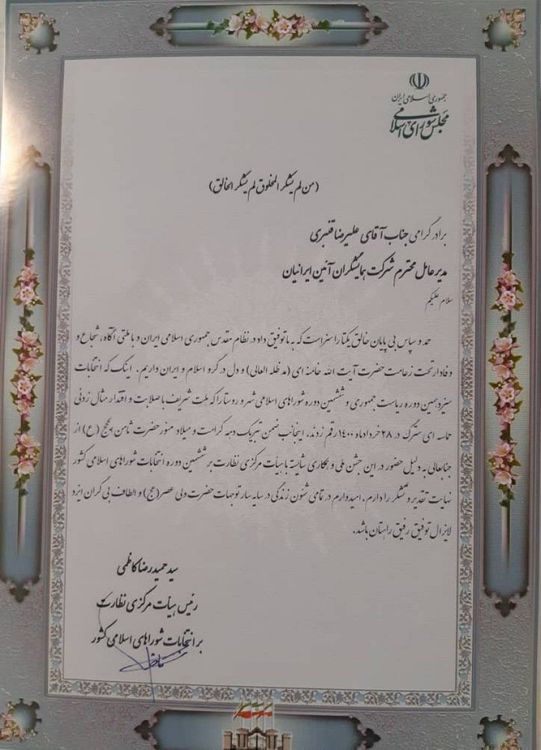 جمهوری اسلامی ایران
مجلس شورای اسلامی
(من لم یشکر المخلوق لم یشکر الخالق)
برادر گرامی جناب آقای علیرضا قنبری
مدیر عامل محترم شرکت همایشگران آئین ایرانیان
سلام علیکم
حمد و سپاس بی پایان خالق یکتا را سزاست که به ما توفیق داد در نظام مقدس جمهوری اسلامی ایران و با ملتی آگاه، شجاع و
وفادار تحت زعامت حضرت آیت الله خامنه ای (مدظله العالی) و دل در گرو اسلام و ایران داریم. اینک که انتخابات
سیزدهمین دوره ریاست جمهوری و ششمین دوره شوراهای اسلامی شهر و روستا را که ملت شریف با صلابت و اقتدار مثال زدنی
حماسه ای سترگ در ۲۸ خرداد ماه ۱۴۰۰ رقم زدند، اینجانب ضمن تبریک دهه کرامت و میلاد منور حضرت ثامن الحجج (ع) از
جنابعالی به دلیل حضور در این جشن ملی و همکاری شایسته با هیأت مرکزی نظارت بر ششمین دوره انتخابات شوراهای اسلامی کشور
نهایت تقدیر و تشکر را دارم. امیدوارم در تمامی شئون زندگی در سایه سار توجهات حضرت ولی عصر (عج) و الطاف بی کران ایزد
لایزال توفیق رفیق راهتان باشد.
سید حمیدرضا کاظمی
رئیس هیأت مرکزی نظارت
بر انتخابات شوراهای اسلامی کشور